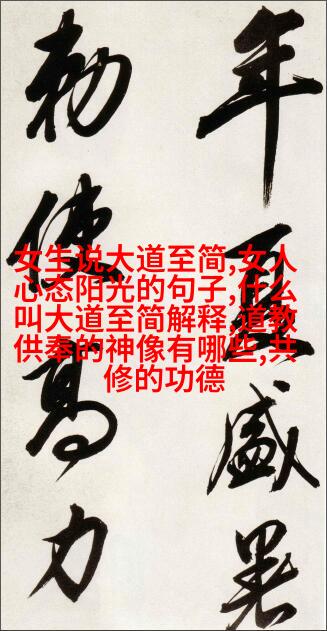 年夏盛暑
勅使高力
女生说大道至简,女人
心态阳光的句子,什么
叫大道至简解释,道教
供奉的神像有哪些,共
修的功德